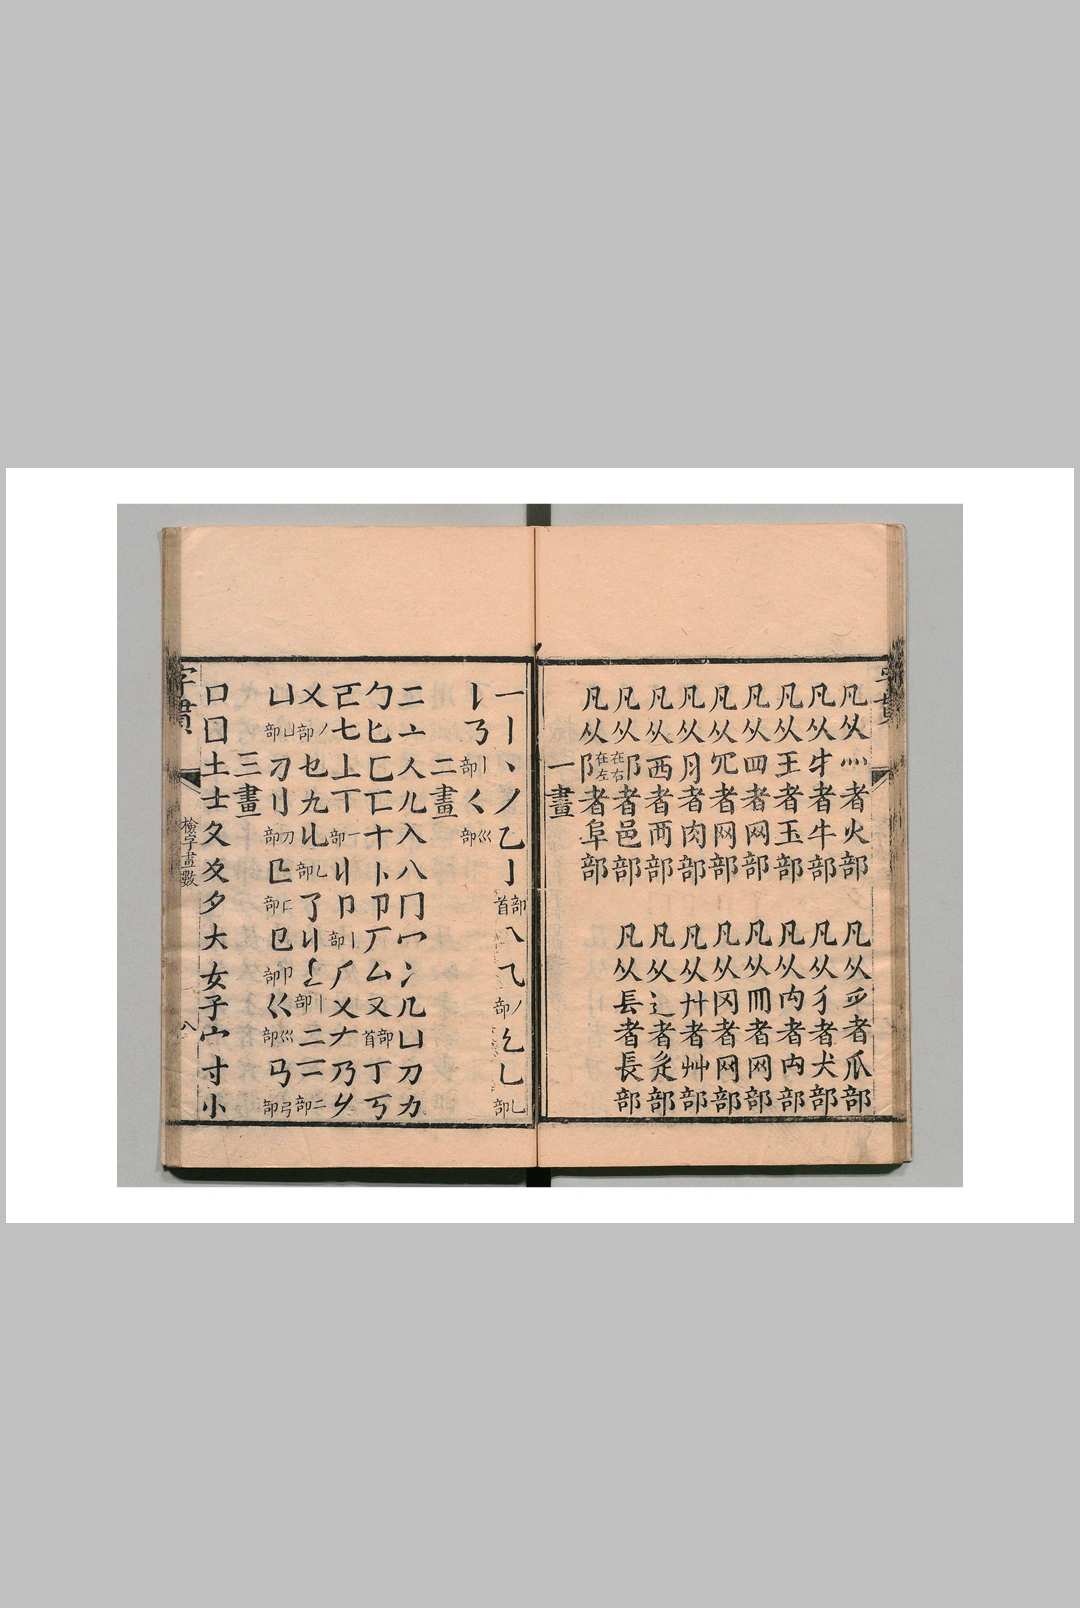 字貫
凡从灬者火部 凡从爫者爪部
凡从牜者牛部 凡从犭者犬部
凡从王者玉部 凡从禸者禸部
凡从四者网部 凡从罒者网部
凡从㓁者网部 凡从冈者网部
凡从月者肉部 凡从艹者艸部
凡从西者襾部 凡从辶者辵部
凡从阝在右者邑部 凡从镸者長部
凡从阝在左者阜部
一畫
一丨丶丿乙亅部首乀⺄丿部乞乚乚部
丨部く巛部
二畫
二亠人儿入八冂冖冫几凵刀力
勹匕匚匸十卜卩厂厶又部首丁丂
七上丅一部卩丨部𠂇乃
乂丿部乜九乚部了丨部二二部
凵凵部刁刂刀部卩部巛部弓部
三畫
口囗土士夂夊夕大女子宀寸小
字貫
檢字畫數
八